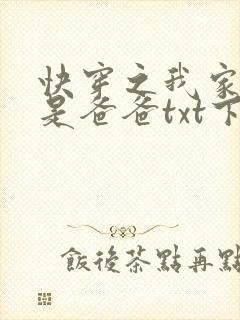 快穿之我家
是爸爸txt下
飯後茶點再點